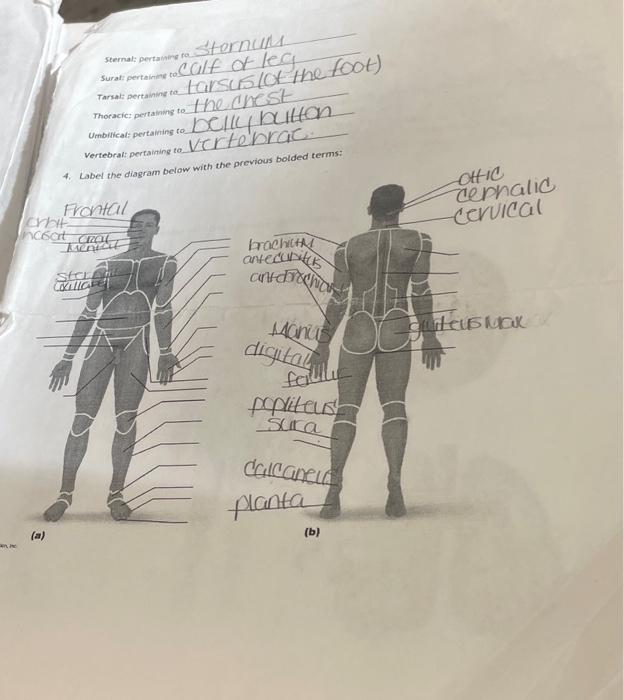 Sternal: pertaining to Sternum
Sural: pertaining to calf of leg
Tarsal: pertaining to tarsus (of the foot)
Thoracic: pertaining to the chest
Umbilical: pertaining to belly button
Vertebral: pertaining to vertebrae.
4. Label the diagram below with the previous bolded terms:
Frontal
orbit
nasal oral
Mental
axillary
brachium
antecubitis
Manus
digital
popliteus
sura
calcaneus
planta
ottic
cephalic
cervical
gluteus Max
(a)
(b)